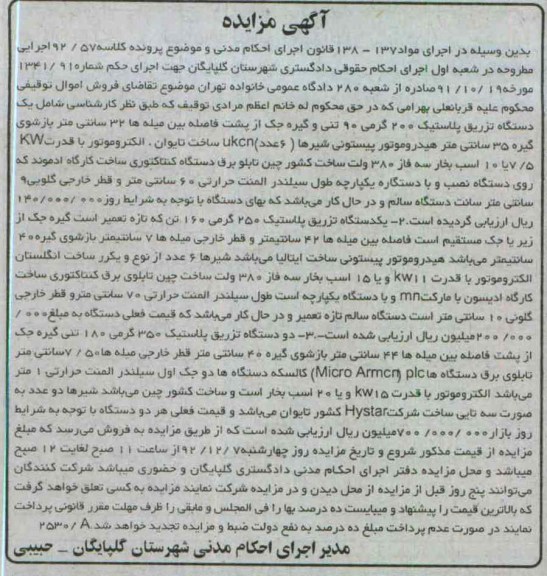 آگهی مزایده
بدین وسیله در اجرای مواد۱۳۷ - ۱۳۸قانون اجرای احکام مدنی و موضوع پرونده کلاسه۵۷ /۹۲اجرایی
مطروحه در شعبه اول اجرای احکام حقوقی دادگستری شهرستان گلپایگان جهت اجرای حکم شماره۹۱۰ /۱۳۴۱
مورخه۱۹ /۱۰ /۹۱صادره از شعبه ۲۸۰ دادگاه عمومی خانواده تهران موضوع تقاضای فروش اموال توقیفی
محکوم علیه قربانعلی بهرامی که در حق محکوم له خانم اعظم مرادی توقیف که طبق نظر کارشناسی شامل یک
دستگاه تزریق پلاستیک ۲۰۰ گرمی ۹۰ تنی و گیره جک از پشت فاصله بین میله ها ۳۲ سانتی متر بازشوی
گیره ۳۵ سانتی متر هیدروموتور پیستونی شیرها (۶عدد)ukcn ساخت تایوان . الکتروموتور با قدرتKW
۷/۵یا ۱۰ اسب بخار سه فاز ۳۸۰ ولت ساخت کشور چین تابلو برق دستگاه کنتاکتوری ساخت کارگاه ادموند که
روی دستگاه نصب و با دستگاره یکپارچه طول سیلندر المنت حرارتی ۶۰ سانتی متر و قطر خارجی گلویی۹
سانتی متر سانت دستگاه سالم و در حال کار می‌باشد که بهای دستگاه با توجه به شرایط روز۰۰۰ /۱۴۰/۰۰۰
ریال ارزیابی گردیده است.۲- یکدستگاه تزریق پلاستیک ۲۵۰ گرمی ۱۶۰ تن که تازه تعمیر است گیره جک از
زیر یا جک مستقیم است فاصله بین میله ها ۴۲ سانتیمتر و قطر خارجی میله ها ۷ سانتیمتر بازشوی گیره۴۰
سانتیمتر می‌باشد هیدروموتور پیستونی ساخت ایتالیا می‌باشد شیرها ۶ عدد از نوع و یکرر ساخت انگلستان
الکتروموتور با قدرت kw۱۱ و یا ۱۵ اسب بخار سه فاز ۳۸۰ ولت ساخت چین تابلوی برق کنتاکتوری ساخت
کارگاه ادیسون با مارکتmn و با دستگاه یکپارچه است طول سیلندر المنت حرارتی ۷۰ سانتی مترو قطر خارجی
گلوئی ۱۰ سانتی متر است دستگاه سالم تازه تعمیر و در حال کار می‌باشد که قیمت فعلی دستگاه به مبلغ۰۰۰ /
۰۰۰/ ۲۰۰میلیون ریال ارزیابی شده است-.۳- دو دستگاه تزریق پلاستیک ۳۵۰ گرمی ۱۸۰ تنی گیره جک
از پشت فاصله بین میله ها ۴۴ سانتی متر بازشوی گیره ۴۰ سانتی متر قطر خارجی میله ها۵ /۷سانتی متر
تابلوی برق دستگاه هاMicro Armcn) plc) کالسکه دستگاه ها دو جک اول سیلندر المنت حرارتی ۱ متر
می‌باشد الکتروموتور با قدرت kw۱۵ و یا ۲۰ اسب بخار است و ساخت کشور چین می‌باشد شیرها دو عدد به
صورت سه تایی ساخت شرکتHystar کشور تایوان می‌باشد و قیمت فعلی هر دو دستگاه با توجه به شرایط
روز بازار۰۰۰ /۰۰۰ /۷۰۰میلیون ریال ارزیابی شده است که از طریق مزایده به فروش می‌رسد که مبلغ
مزایده از قیمت مذکور شروع و تاریخ مزایده روز چهارشنبه۷ /۱۲ /۹۲از ساعت ۱۱ صبح لغایت ۱۲ صبح
میباشد و محل مزایده دفتر اجرای احکام مدنی دادگستری گلپایگان و حضوری میباشد شرکت کنندگان
می‌توانند پنج روز قبل از مزایده از محل دیدن و در مزایده شرکت نمایند مزایده به کسی تعلق خواهد گرفت
که بالاترین قیمت را پیشنهاد و میبایست ده درصد بها را فی المجلس و مابقی را ظرف مهلت مقرر قانونی پرداخت
نمایند در صورت عدم پرداخت مبلغ ده درصد به نفع دولت ضبط و مزایده تجدید خواهد شد.۲۵۳۰/ A
مدیر اجرای احکام مدنی شهرستان گلپایگان – حبیبی